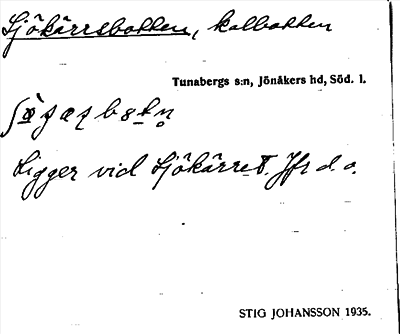 Sjökärrsbotten, kolbotten
Tunabergs s:n, Jönåkers hd, Söd. l.
Ligger vid Sjökärret. Jfr d. o.
STIG JOHANSSON 1935.